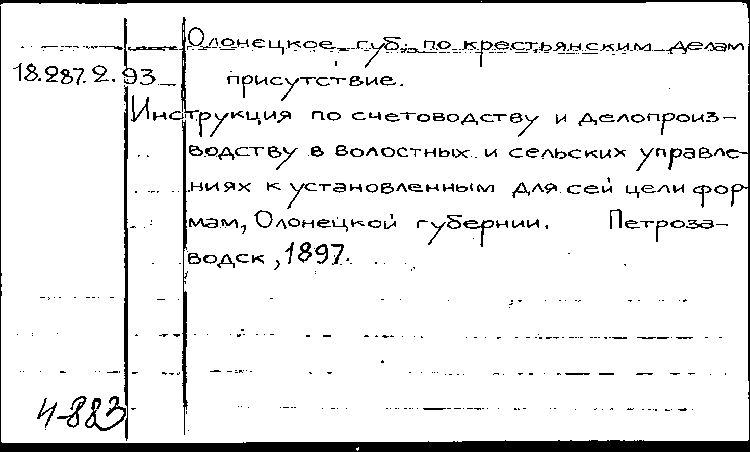 Олонецкое губ. по крестьянским делам
18.287.2.93 присутствие.
Инструкция по счетоводству и делопроиз-
водству в волостных и сельских управле-
ниях к установленным для сей цели фор-
мам, Олонецкой губернии. Петроза-
водск, 1897.
И-883